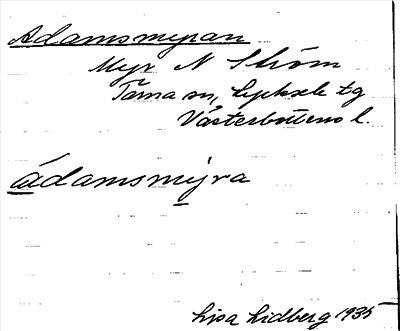 Adamsmyran
Myr N Ström
Tärna sn, Lycksele tg
Västerbottens l.
ádamsmyra
Lisa Lidberg 1935